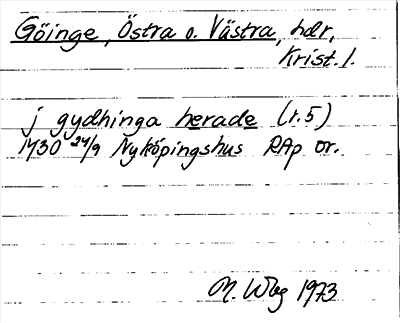 Göinge, Östra o. Västra, hdr,
Krist. l.
j gydhinga herade (r.5)
1430 24/9 Nyköpingshus RAp or.
M. Wbg 1973